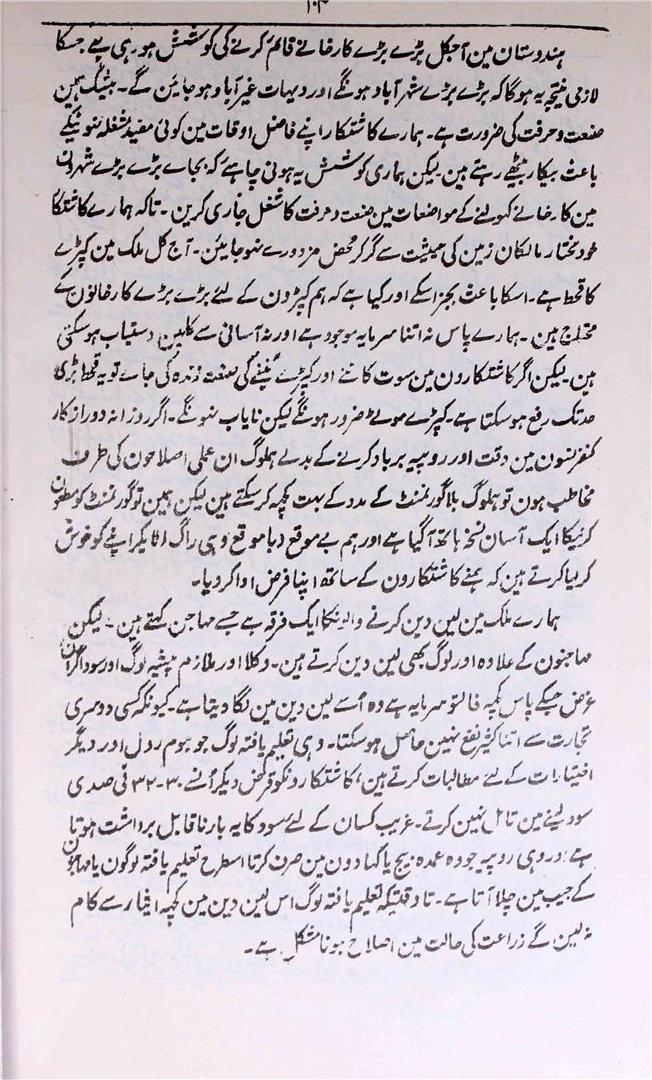 ۱۰۴
ہندوستان مین آجکل بڑے بڑے کارخانے قائم کرنے کی کوشش ہو رہی ہے جسکا
لازمی نتیجہ یہ ہوگا کہ بڑے بڑے شہر آباد ہونگے اور دیہات غیر آباد ہو جائین گے۔ بیشک ہمین
صنعت و حرفت کی ضرورت ہے۔ ہمارے کاشتکار اپنے فاضل اوقات مین کوئی مفید مشغلہ نہونیکے
باعث بیکار بیٹھے رہتے ہین۔ لیکن ہماری کوشش یہ ہونی چاہئے کہ بجاے بڑے بڑے شہرون
مین کارخانے کھولنے کے مواضعات مین صنعت و حرفت کا شغل جاری کرین۔ تاکہ ہمارے کاشتکار
خودمختار مالکان زمین کی حیثیت سے گر کر محض مزدورے نہو جایئن۔ آج کل ملک مین کپڑے
کا قحط ہے۔ اسکا باعث بجز اسکے اور کیا ہے کہ ہم کپڑون کے لئے بڑے بڑے کارخانون کے
محتاج ہین۔ ہمارے پاس نہ اتنا سرمایہ موجود ہے اور نہ آسانی سے کلین دستیاب ہو سکتی
ہین۔ لیکن اگر کاشتکارون مین سوت کاتنے اور کپڑے بُننے کی صنعت زندہ کی جاے تو یہ قحط بڑی
حد تک رفع ہو سکتا ہے۔ کپڑے موٹے ضرور ہونگے لیکن نایاب نہونگے۔ اگر روزانہ دور از کار
کنفرنسون مین وقت اور روپیہ برباد کرنے کے بدلے ہملوگ ان عملی اصلاحون کی طرف
مخاطب ہون تو ہملوگ بلا گورنمنٹ کے مدد کے بہت کچھ کر سکتے ہین لیکن ہمین تو گورنمنٹ کو مطعون
کرنیکا ایک آسان نسخہ ہاتھ آگیا ہے اور ہم بے موقع و باموقع وہی راگ الاپکر اپنے کو خوش
کر لیا کرتے ہین کہ ہمنے کاشتکارون کے ساتھ اپنا فرض ادا کر دیا۔
ہمارے ملک مین لین دین کرنے والونکا ایک فرقہ ہے جسے مہاجن کہتے ہین۔ لیکن
مہاجنون کے علاوہ اور لوگ بھی لین دین کرتے ہین۔ وکلا اور ملازم پیشہ لوگ اور سوداگران
غرض جسکے پاس کچھ فالتو سرمایہ ہے وہ اُسے لین دین مین لگا دیتا ہے۔ کیونکہ کسی دوسری
تجارت سے اتنا کثیر نفع نہین حاصل ہو سکتا۔ وہی تعلیم یافتہ لوگ جو ہوم رول اور دیگر
اختیارات کے لئے مطالبات کرتے ہین، کاشتکارونکو قرض دیکر اُنسے ۳۰-۳۲ فی صدی
سود لینے مین تامل نہین کرتے۔ غریب کسان کے لئے سود کا یہ بار ناقابل برداشت ہوتا
ہے اور وہی روپیہ جو وہ عمدہ بیج یا کھادون مین صرف کرتا اسطرح تعلیم یافتہ لوگون یا مہاجن
کے جیب مین چلا آتا ہے۔ تاوقتیکہ تعلیم یافتہ لوگ اس لین دین مین کچھ ایثار سے کام
نہ لین گے زراعت کی حالت مین اصلاح ہونا مشکل ہے۔